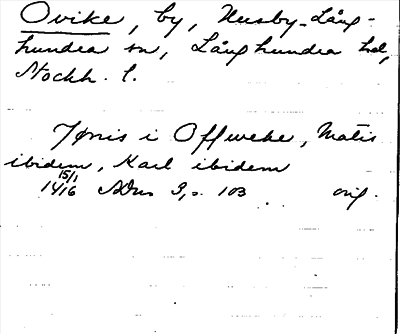 Ovike, by, Husby-Lång-
hundra sn, Långhundra hd,
Stockh. l.
Jønis i Offweke, Matis
ibidem, Karl ibidem
15/1
1416 ADns 3, s. 103 orig.